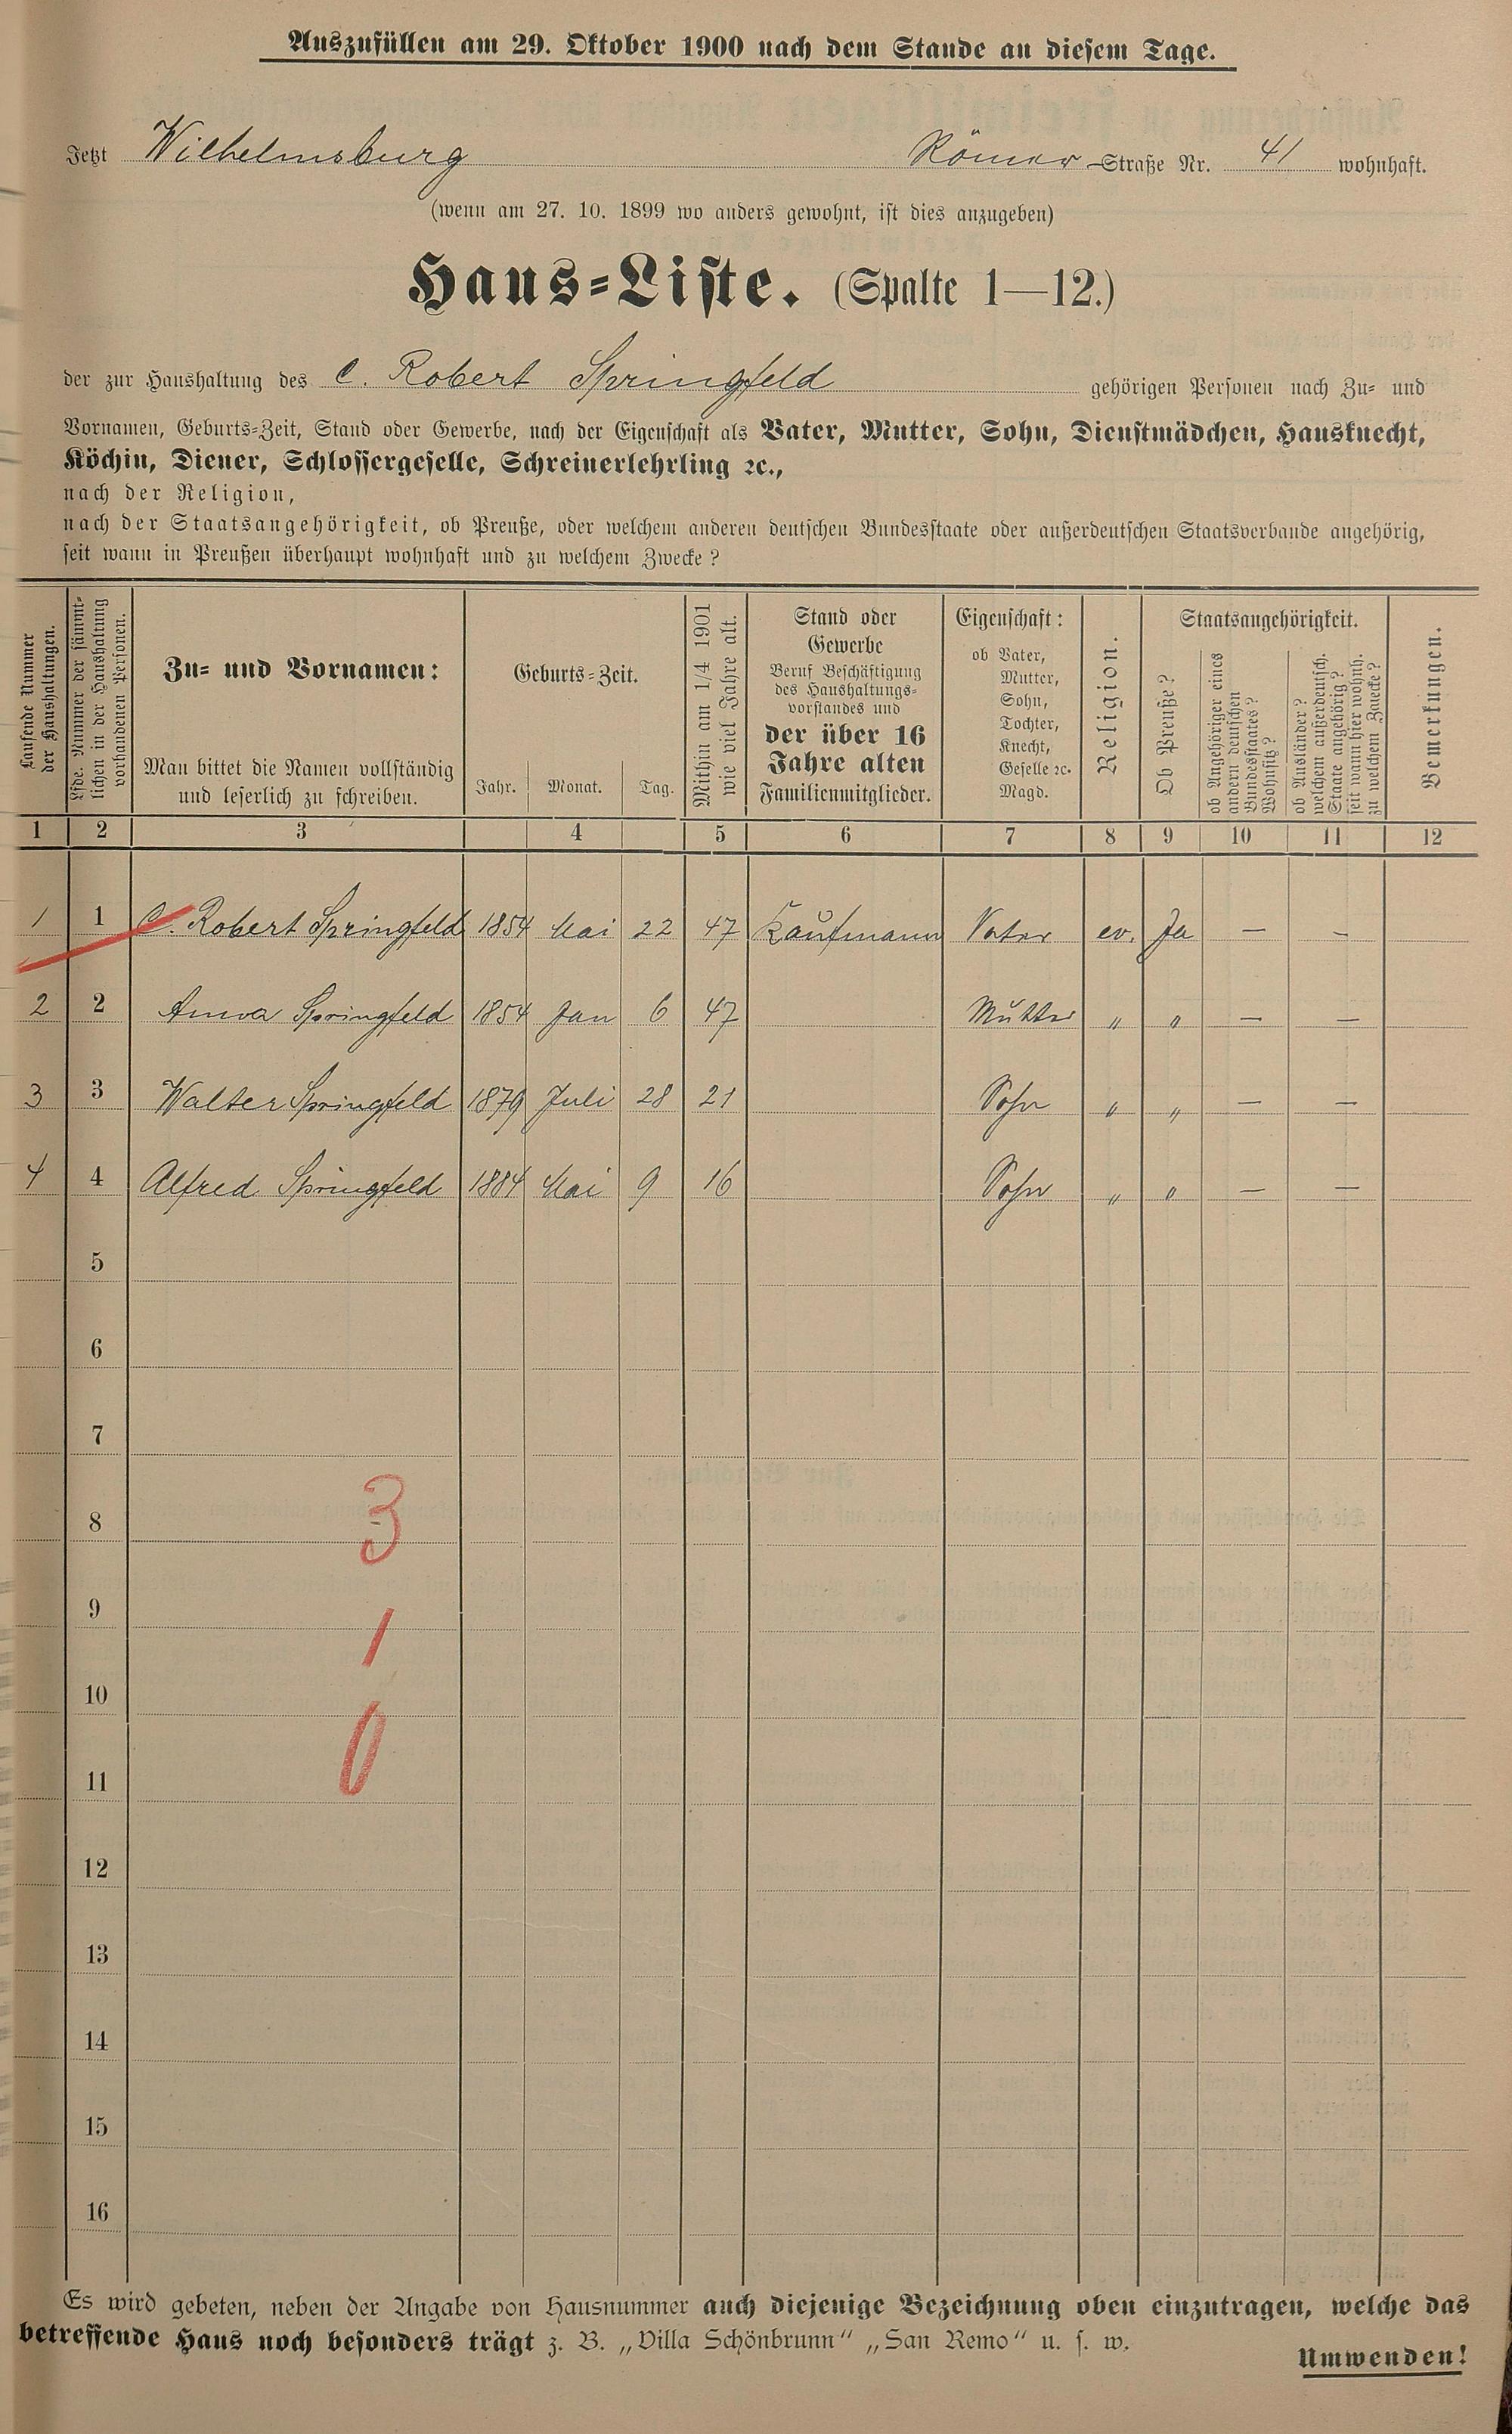 Auszufüllen am 29. Oktober 1900 nach dem Stande an diesem Tage.
Jetzt Wilhelmsburg Römer-Straße Nr. 41 wohnhaft.
(wenn am 27. 10. 1899 wo anders gewohnt, ist dies anzugeben)
Haus-Liste. (Spalte 1—12.)
der zur Haushaltung des C. Robert Springfeld gehörigen Personen nach Zu- und
Vornamen, Geburts-Zeit, Stand oder Gewerbe, nach der Eigenschaft als Vater, Mutter, Sohn, Dienstmädchen, Hausknecht,
Köchin, Diener, Schlossergeselle, Schreinerlehrling ꝛc.,
nach der Religion,
nach der Staatsangehörigkeit, ob Preuße, oder welchem anderen deutschen Bundesstaate oder außerdeutschen Staatsverbande angehörig,
seit wann in Preußen überhaupt wohnhaft und zu welchem Zwecke?
Laufende Nummer
der Haushaltungen.
Lfde. Nummer der sämmt-
lichen in der Haushaltung
vorhandenen Personen.
Zu- und Vornamen:
Man bittet die Namen vollständig
und leserlich zu schreiben.
Geburts-Zeit.
Jahr. Monat. Tag.
Mithin am 1/4 1901
wie viel Jahre alt.
Stand oder
Gewerbe
Beruf Beschäftigung
des Haushaltungs-
vorstandes und
der über 16
Jahre alten
Familienmitglieder.
Eigenschaft:
ob Vater,
Mutter,
Sohn,
Tochter,
Knecht,
Geselle ꝛc.
Magd.
Religion.
Staatsangehörigkeit.
Ob Preuße?
ob Angehöriger eines
andern deutschen
Bundesstaates?
Wohnsitz?
ob Ausländer?
welchem außerdeutsch.
Staate angehörig?
seit wann hier wohnh.
zu welchem Zwecke?
Bemerkungen.
1 2 3 4 5 6 7 8 9 10 11 12
1 1 C. Robert Springfeld 1854 Mai 22 47 Kaufmann Vater ev. Ja — —
2 2 Anna Springfeld 1854 Jan 6 47 Mutter " " — —
3 3 Walter Springfeld 1879 Juli 28 21 Sohn " " — —
4 4 Alfred Springfeld 1884 Mai 9 16 Sohn " " — —
5
6
7
8 3
9 1
10
11 0
12
13
14
15
16
Es wird gebeten, neben der Angabe von Hausnummer auch diejenige Bezeichnung oben einzutragen, welche das
betreffende Haus noch besonders trägt z. B. „Villa Schönbrunn“ „San Remo“ u. s. w.
Umwenden!